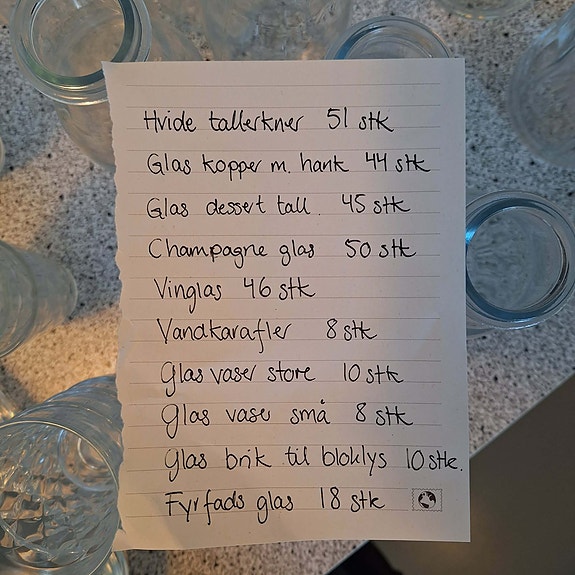 Hvide tallerkner 51 stk
Glas kopper m. hank 44 stk
Glas dessert tall. 45 stk
Champagne glas 50 stk
Vinglas 46 stk
Vandkarafler 8 stk
Glas vaser store 10 stk
Glas vaser små 8 stk
Glas brik til bloklys 10 stk.
Fyrfads glas 18 stk